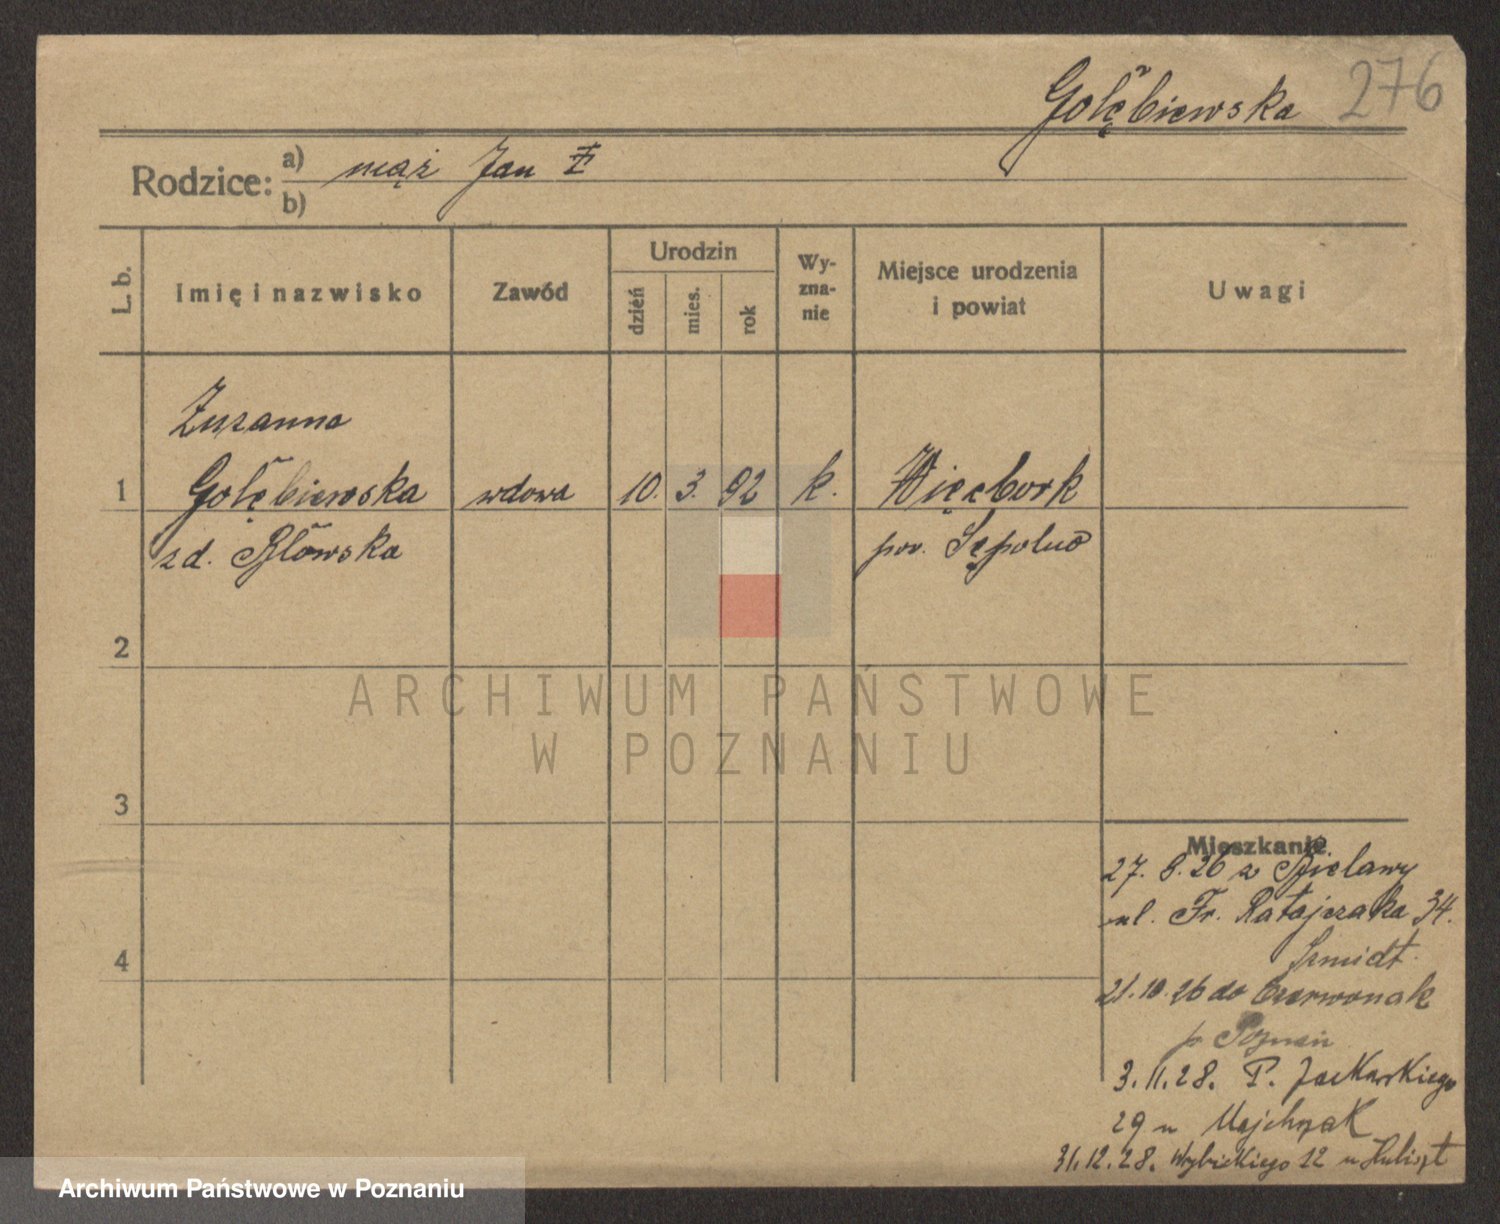 Gołębiewska 276
Rodzice: a) mąż Jan
b)
L. b.
Imię i nazwisko
Zawód
Urodzin
dzień
mies.
rok
Wy-
zna-
nie
Miejsce urodzenia
i powiat
Uwagi
Zuzanna
1 Gołębiewska wdowa 10. 3. 92 k. Więcbork
zd. pow. Sępolno
2
3
4
Mieszkanie
27. 8. 26 z Bielawy
ul. Fr. Ratajczaka 34.
Szmidt.
21. 10. 26 do Czerwonak
p. Poznań
3. 11. 28. P. Jackowskiego
29 u Majchrzak
31. 12. 28. Wybickiego 12 u
ARCHIWUM PAŃSTWOWE
W POZNANIU
Archiwum Państwowe w Poznaniu